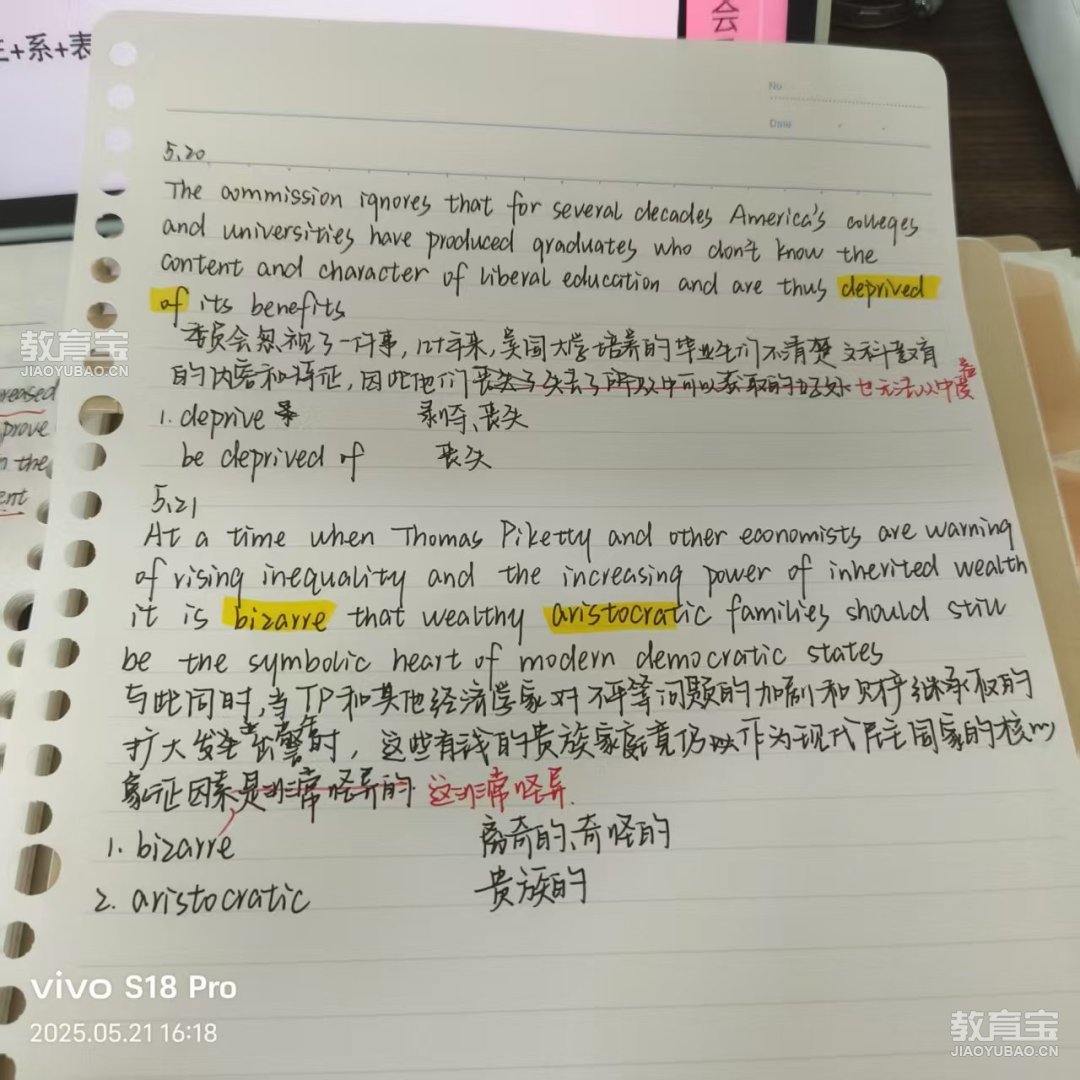 主+系+表
会
No
Date
5.20
The commission ignores that for several decades America's colleges
and universities have produced graduates who don't know the
content and character of liberal education and are thus deprived
of its benefits
委员会忽视了一件事,几十年来,美国大学培养的毕业生们不清楚文科教育
的内容和特征,因此他们丧失了失去了所从中可以获取的好处 也无法从中受益
1. deprive 剥夺、丧失
be deprived of 丧失
5.21
At a time when Thomas Piketty and other economists are warning
of rising inequality and the increasing power of inherited wealth
it is bizarre that wealthy aristocratic families should still
be the symbolic heart of modern democratic states
与此同时,当TP和其他经济学家对不平等问题的加剧和财产继承权的
扩大发出警告时,这些有钱的贵族家庭竟仍以作为现代民主国家的核心
象征因素是非常怪异的 这非常怪异.
1. bizarre 离奇的、奇怪的
2. aristocratic 贵族的
reased
prove
n the
ent
教育宝
JIAOYUBAO.CN
vivo S18 Pro
2025.05.21 16:18
教育宝
JIAOYUBAO.CN